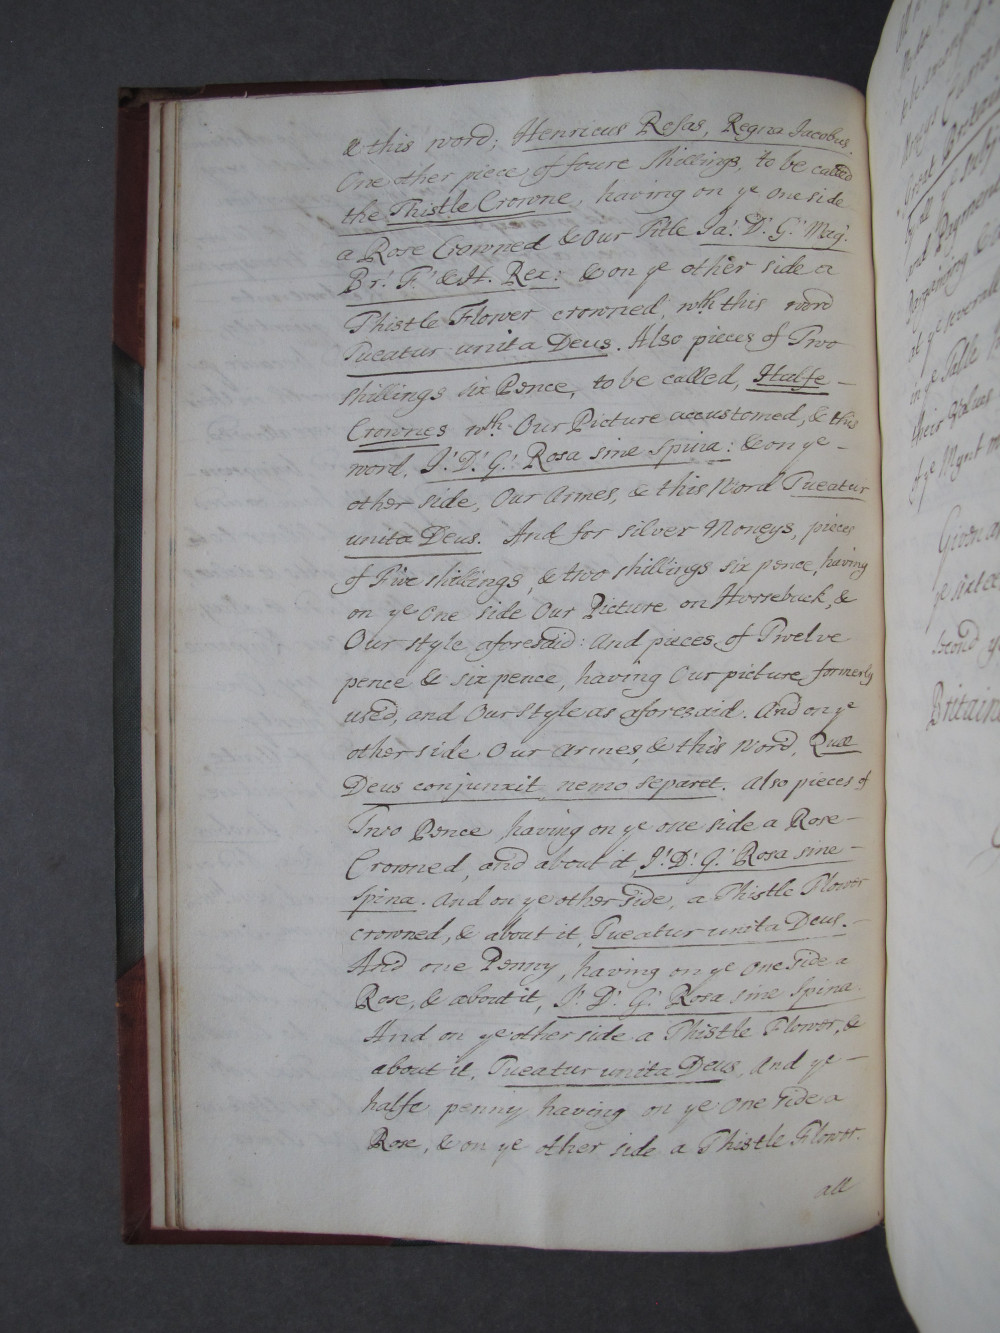 & this word; Henricus Rosas, Regna Jacobus.
One other piece of foure shillings, to be called
the Thistle Crowne, having on ye one side
a Rose Crowned & Our Title Ja: D: G: Mag:
Br: F: & H. Rex: & on ye other side a
Thistle Flower crowned, wth this word
Tueatur unita Deus. Also pieces of Two
shillings six Pence, to be called, Halfe –
Crownes wth Our Picture accustomed, & this
word, J: D: G: Rosa sine Spina: & on ye –
other side, Our Armes, & this Word Tueatur
unita Deus. And for silver Moneys, pieces
of Five shillings, & two shillings six pence, having
on ye One side Our Picture on Horseback, &
Our style aforesaid: And pieces of Twelve
pence & six pence, having Our picture formerly
used, and Our Style as aforesaid. And on ye
other side Our Armes, & this Word, Quæ
Deus conjunxit, nemo separet. Also pieces of
Two Pence having on ye one side a Rose –
Crowned, and about it, J: D: G: Rosa sine –
Spina. And on ye other side, a Thistle Flower
crowned, & about it, Tueatur unita Deus. –
And one Penny, having on ye one side a
Rose, & about it, J: D: G: Rosa sine Spina.
And on ye other side a Thistle Flower, &
about it, Tueatur unita Deus, And ye –
halfe penny having on ye One side a
Rose, & on ye other side a Thistle Flower.
all
Great Britain
all
and Payments
at ye severall
in ye Table
their Values
of ye Mynt
Given
ye sixtee
Second ye
Britain